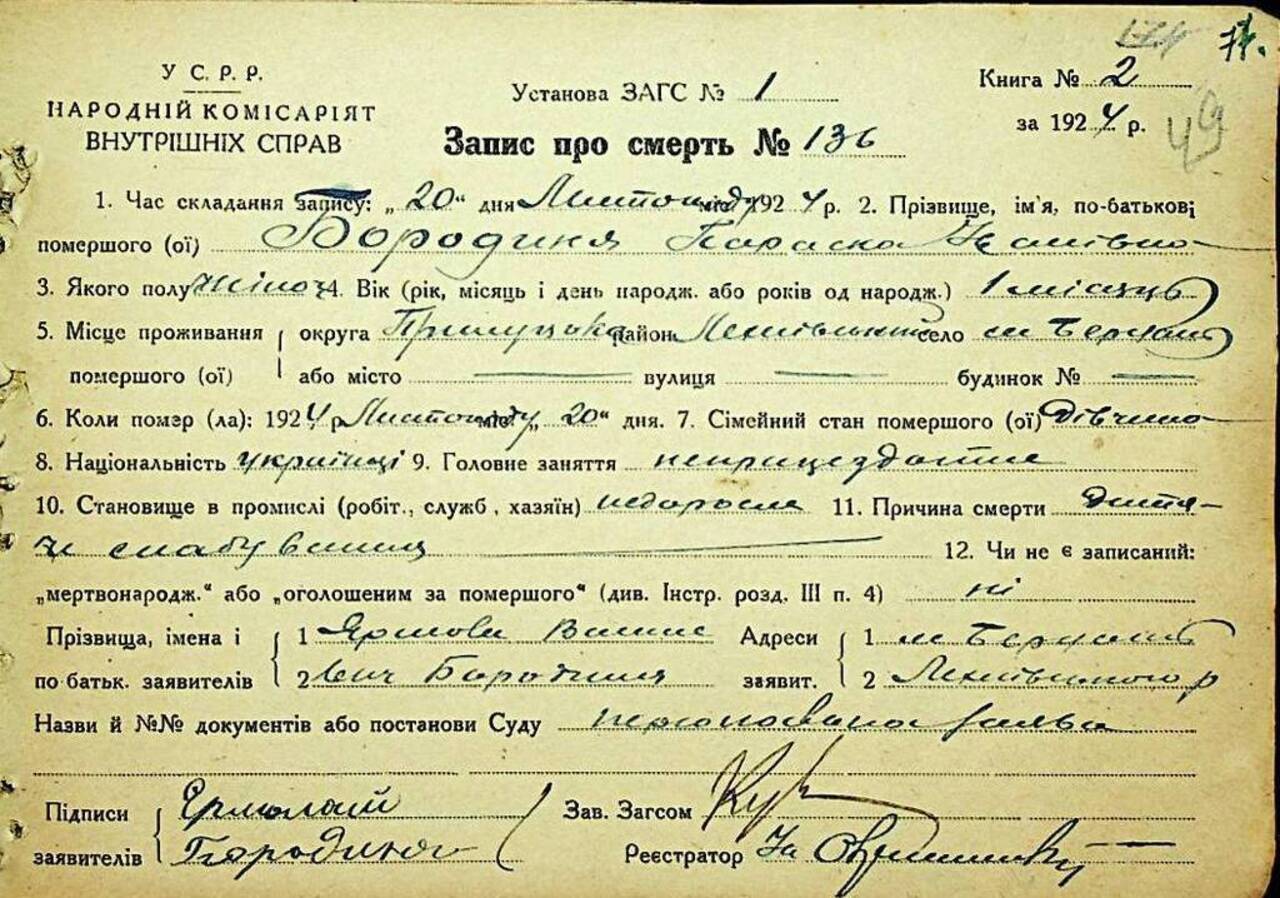 71.
У С. Р. Р.
НАРОДНІЙ КОМІСАРІЯТ
ВНУТРІШНІХ СПРАВ
Установа ЗАГС № 1
Книга № 2
за 1924 р.
49
Запис про смерть № 136
1. Час складання запису: „ 20 “ дня Листопаду міс. 1924 р. 2. Прізвище, ім'я, по-батькові
помершого (ої) Бородиня Параска
3. Якого полу жіноч 4. Вік (рік, місяць і день народж. або років од народж.) 1 місяць
5. Місце проживання округа Прилуцька район село м Березань
помершого (ої) або місто вулиця будинок №
6. Коли помер (ла): 1924 р. Листопаду міс. „ 20 “ дня. 7. Сімейний стан помершого (ої) Дівчина
8. Національність українці 9. Головне заняття непрацездатне
10. Становище в промислі (робіт., служб., хазяїн) недоросла 11. Причина смерти дитя-
че слабування 12. Чи не є записаний:
„мертвонародж.“ або „оголошеним за помершого“ (див. Інстр. розд. III п. 4) ні
Прізвища, імена і 1 Адреси 1 м Березань
по батьк. заявителів 2 вич Бородиня заявит. 2 р
Назви й №№ документів або постанови Суду заява
Підписи Ермолай Зав. Загсом
заявителів Бородиня Реєстратор